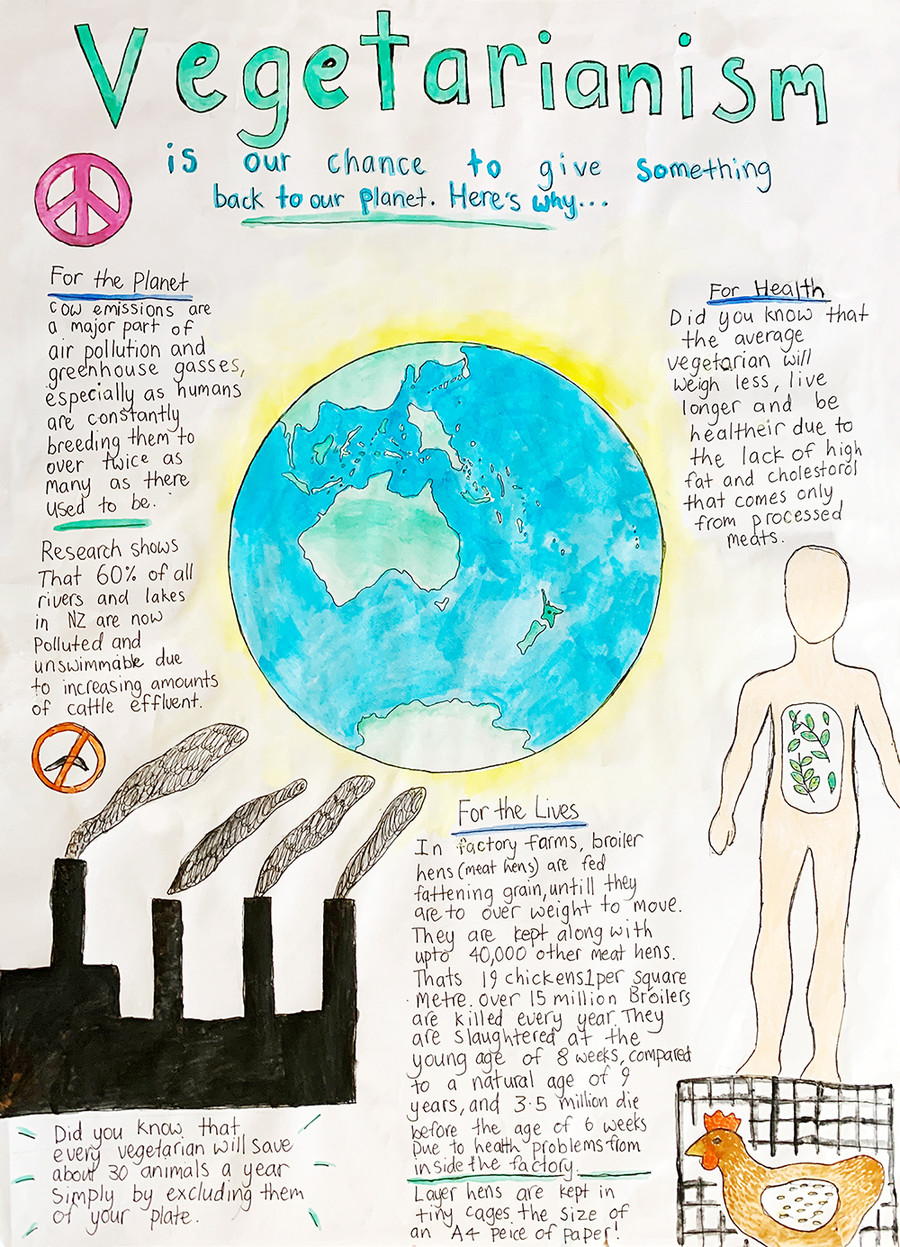 Vegetarianism
is our chance to give something
back to our planet. Here's why...
For the Planet
cow emissions are
a major part of
air pollution and
greenhouse gasses,
especially as humans
are constantly
breeding them to
over twice as
many as there
used to be.
Research shows
That 60% of all
rivers and lakes
in NZ are now
Polluted and
unswimmable due
to increasing amounts
of cattle effluent.
For Health
Did you know that
the average
vegetarian will
weigh less, live
longer and be
healtheir due to
the lack of high
fat and cholestorol
that comes only
from processed
meats.
For the Lives
In factory farms, broiler
hens (meat hens) are fed
fattening grain, untill they
are to over weight to move.
They are kept along with
upto 40,000 other meat hens.
Thats 19 chickens1per square
Metre. over 15 million Broilers
are killed every year. They
are slaughtered at the
young age of 8 weeks, compared
to a natural age of 9
years, and 3.5 million die
before the age of 6 weeks
Due to health problems from
inside the factory.
Layer hens are kept in
tiny cages the size of
an A4 peice of paper!
Did you know that
every vegetarian will save
about 30 animals a year
Simply by excluding them
of your plate.